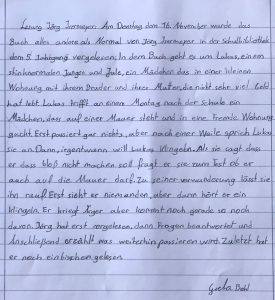 Lesung Jörg Isermeyer. Am Donnstag dem 16. November wurde das
Buch alles andere als Normal von Jörg Isermeyer in der Schulbibliothek
dem 5. Jahrgang vorgelesen. In dem Buch geht es um Lukas, einem
stinknormalen Jungen und Jule, ein Mädchen das in einer kleinen
Wohnung mit ihrem Bruder und ihrer Mutter, die nicht sehr viel Geld
hat lebt. Lukas trifft an einem Montag nach der Schule ein
Mädchen, dass auf einer Mauer steht und in eine fremde Wohnung
guckt. Erst passiert gar nichts, aber nach einer Weile sprich Lukas
sie an. Dann, irgentwann will Lukas klingeln. Als sie sagt dass
er dass bloß nicht machen soll fragt er sie zum Test ob er
auch auf die Mauer darf. Zu seiner verwunderung lässt sie
ihn rauf. Erst sieht er niemanden, aber dann hört er ein
klingeln. Er kriegt Ärger aber kommt noch gerade so noch
davon. Jörg hat erst vorgelesen, dann Fragen beantwortet und
Anschließend erzählt was weiterhin passieren wird. Zuletzt hat
er noch ein bischen gelesen.
Greta